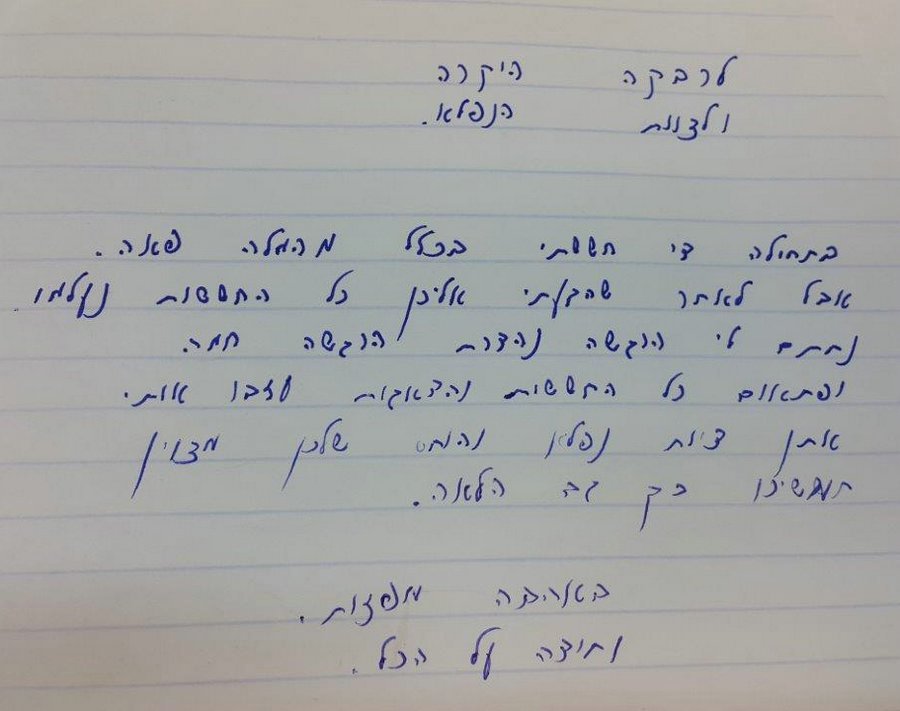 לרבקה היקרה
ולצוות הנפלא.
בתחילה די חששתי בכלל מהגלה פאה.
אבל לאחר שהגעתי אליכן כל החששות נעלמו.
נתתם לי הרגשה נהדרת הרגשה חמה.
ופתאום כל החששות והדאגות עזבו אותי
אתן צוות נפלא והיחס שלכן מצוין
תמשיכו כך גם הלאה.
באהבה
ותודה על הכל.